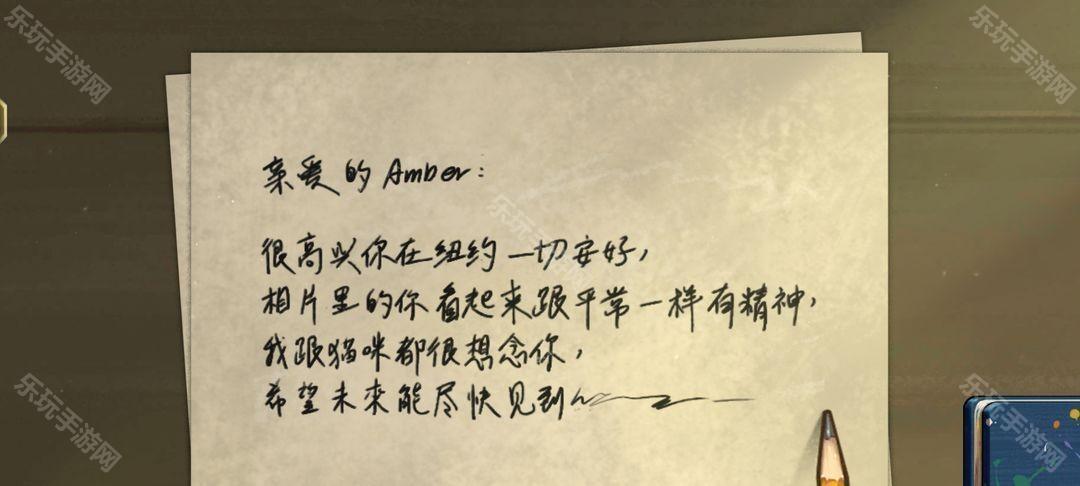 乐玩手游网
乐玩手游网
亲爱的Amber:
乐玩手游网
很高兴你在纽约一切安好,
相片里的你看起来跟平常一样有精神,
我跟猫咪都很想念你,
希望未来能尽快见到
乐玩手游网
乐玩手游网